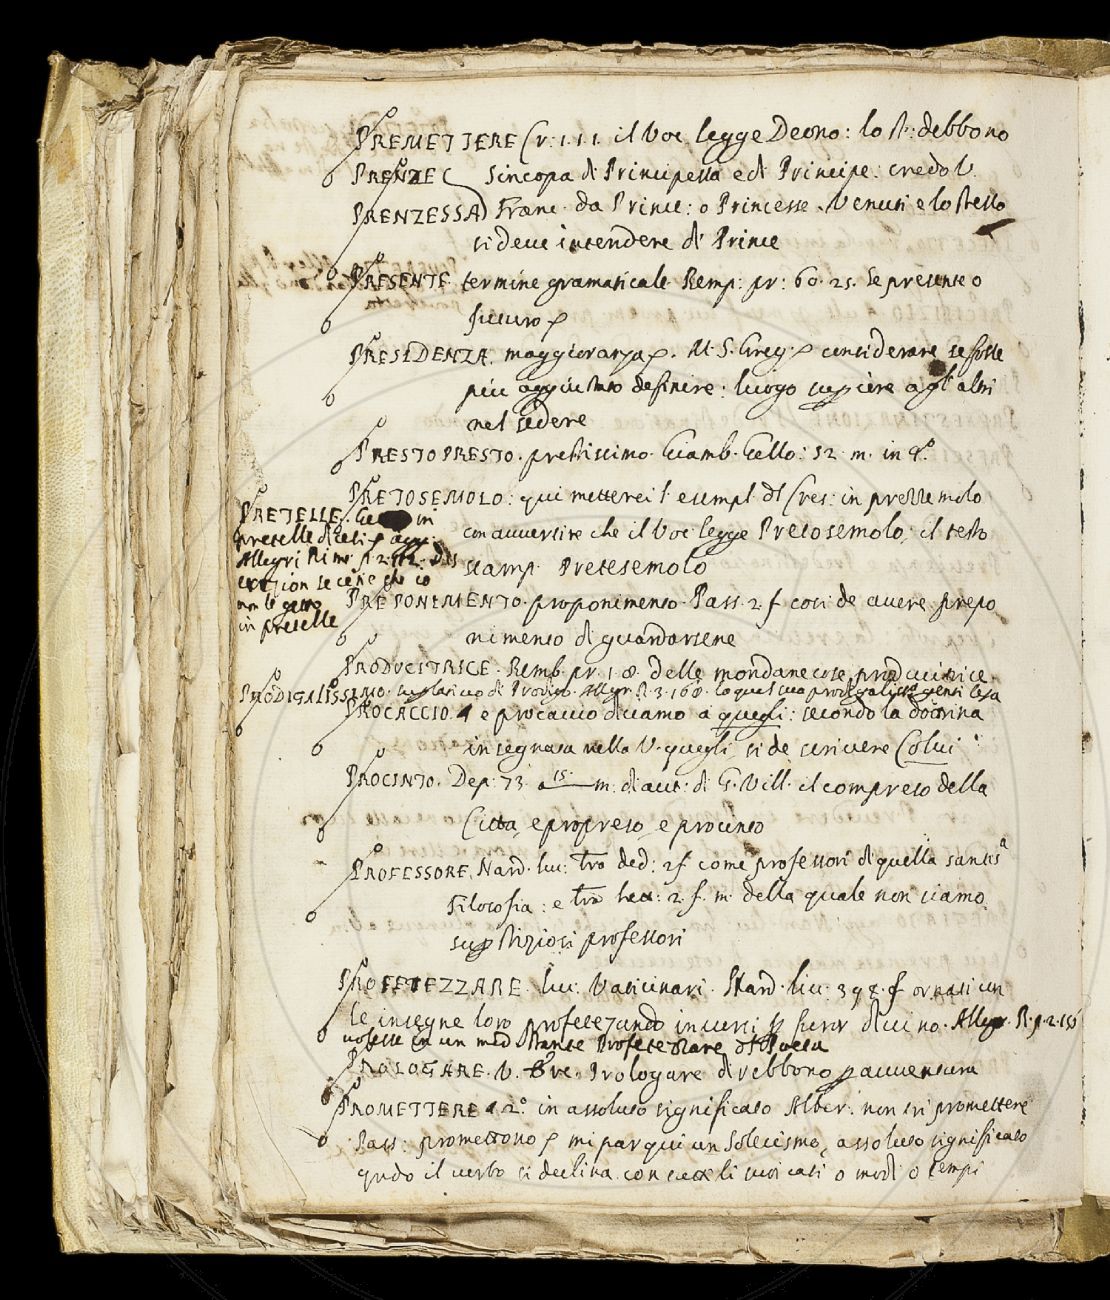 PREMETTERE Cr: 1.11. il Voc legge Deono: lo St: debbono
PRENZE Sincopa di Principessa e di Principe: credo V.
PRENZESSA Franc. da Prince: o Princesse. Venuti e lo stesso
si deve intendere di Prince
PRESENTE termine gramaticale. Bemb: pr: 60. 25. Se presente o
futuro
PRESIDENZA. maggioranza. M. S. Greg. considerare se fosse
più aggiustato definire: luogo superiore agl'altri
nel sedere
PRESTO PRESTO. prestissimo. Giamb. Gello: 52. m. in 8.º
PRETOSEMOLO: qui metterei l'esempl. di Cres: in prezzemolo
con avvertire che il Voc legge Pretosemolo, il testo
stamp. Petesemolo
PRETELLE. in
pretelle
Allegri Rime p. 2.
non le getto
in pretelle
PREPONIMENTO. proponimento. Pass. 2. f. così de avere prepo
nimento di guardarsene
PRODUCITRICE. Bemb. pr. 1. 8. delle mondane cose producitrice.
PRODIGALISSIMO. superlativo di Prodigo. Allegr. R. 3. 168. la qual sua prodigalissª
PROCACCIO. 4 e procaccio diciamo a quegli: secondo la dottrina
insegnata nella V. quegli si de scrivere Colui
PROCINTO. Dep. 73. 15. m. di aut: di G. Vill. il compreso della
Citta, e propreso, e procinto
PROFESSORE. Nard. liv: tra ded: 2 f come professori di quella santissª
Filosofia: e tra lett: 2. f. m. della quale non siamo
superstiziosi professori
PROFETEZZARE. liv. Vaticinari. Nard. liv: 398. f ornati con
le insegne loro profetezando in versi per furor divino. Allegr. R. p. 2. 15
volesse in un med. istante Profetezzare et Poeta
PROLOGARE. V. Bre. Prologare direbbono per avventura
PROMETTERE 4 2º. in assoluto significato Alber: non ti promettere
Pass: promettono mi par qui un solecismo, assoluto significato
qndo il verbo si declina con tutti li suoi casi o modi o tempi